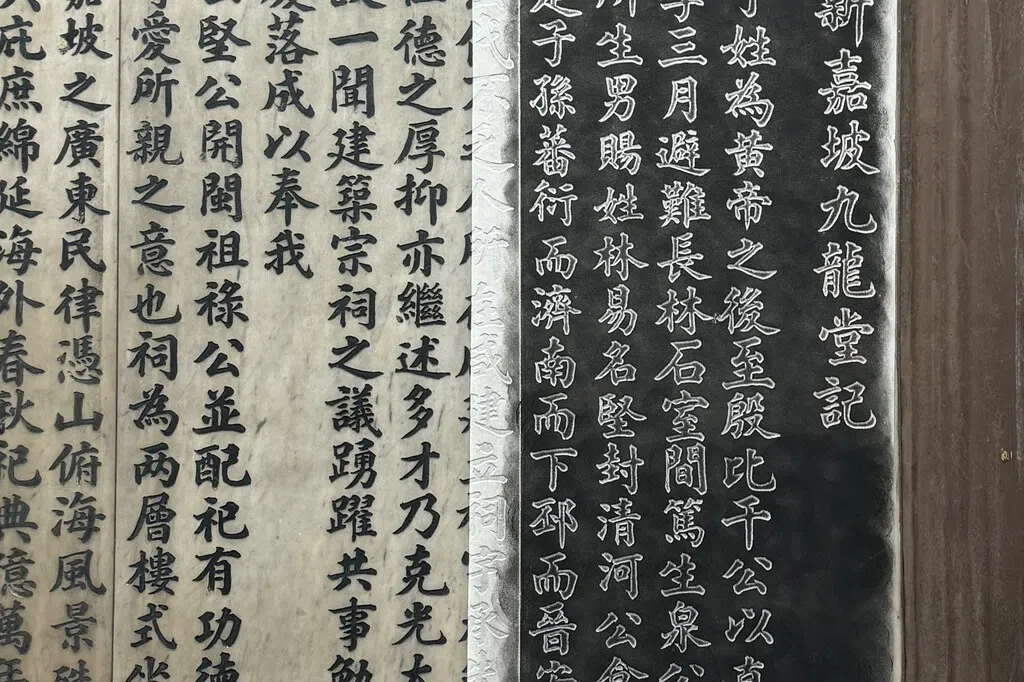 新嘉坡九龍堂記
姓為黃帝之後至殷比干公以
三月避難長林石室間篤生泉公
生男賜姓林易名堅封清河公食
子孫蕃衍而濟南而下邳而晉安
之人所
建立祠宇
德之厚抑亦繼述多才乃克光大
一聞建築宗祠之議踴躍共事勉
落成以奉我
堅公開閩祖祿公並配祀有功德
愛所親之意也祠為兩層樓式坐
坡之廣東民律憑山俯海風景
庇庶綿延海外春秋祀典億萬